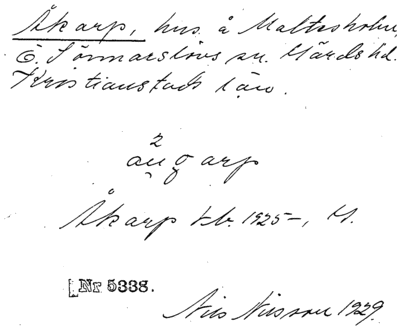 Åkarp, hus å Maltesholm,
Ö. Sönnarslövs sn. Gärds hd.
Kristianstads län.
2
aŋgarp
Åkarp kb. 1925–,
[Nr 5338.
Nils Nilsson 1929.